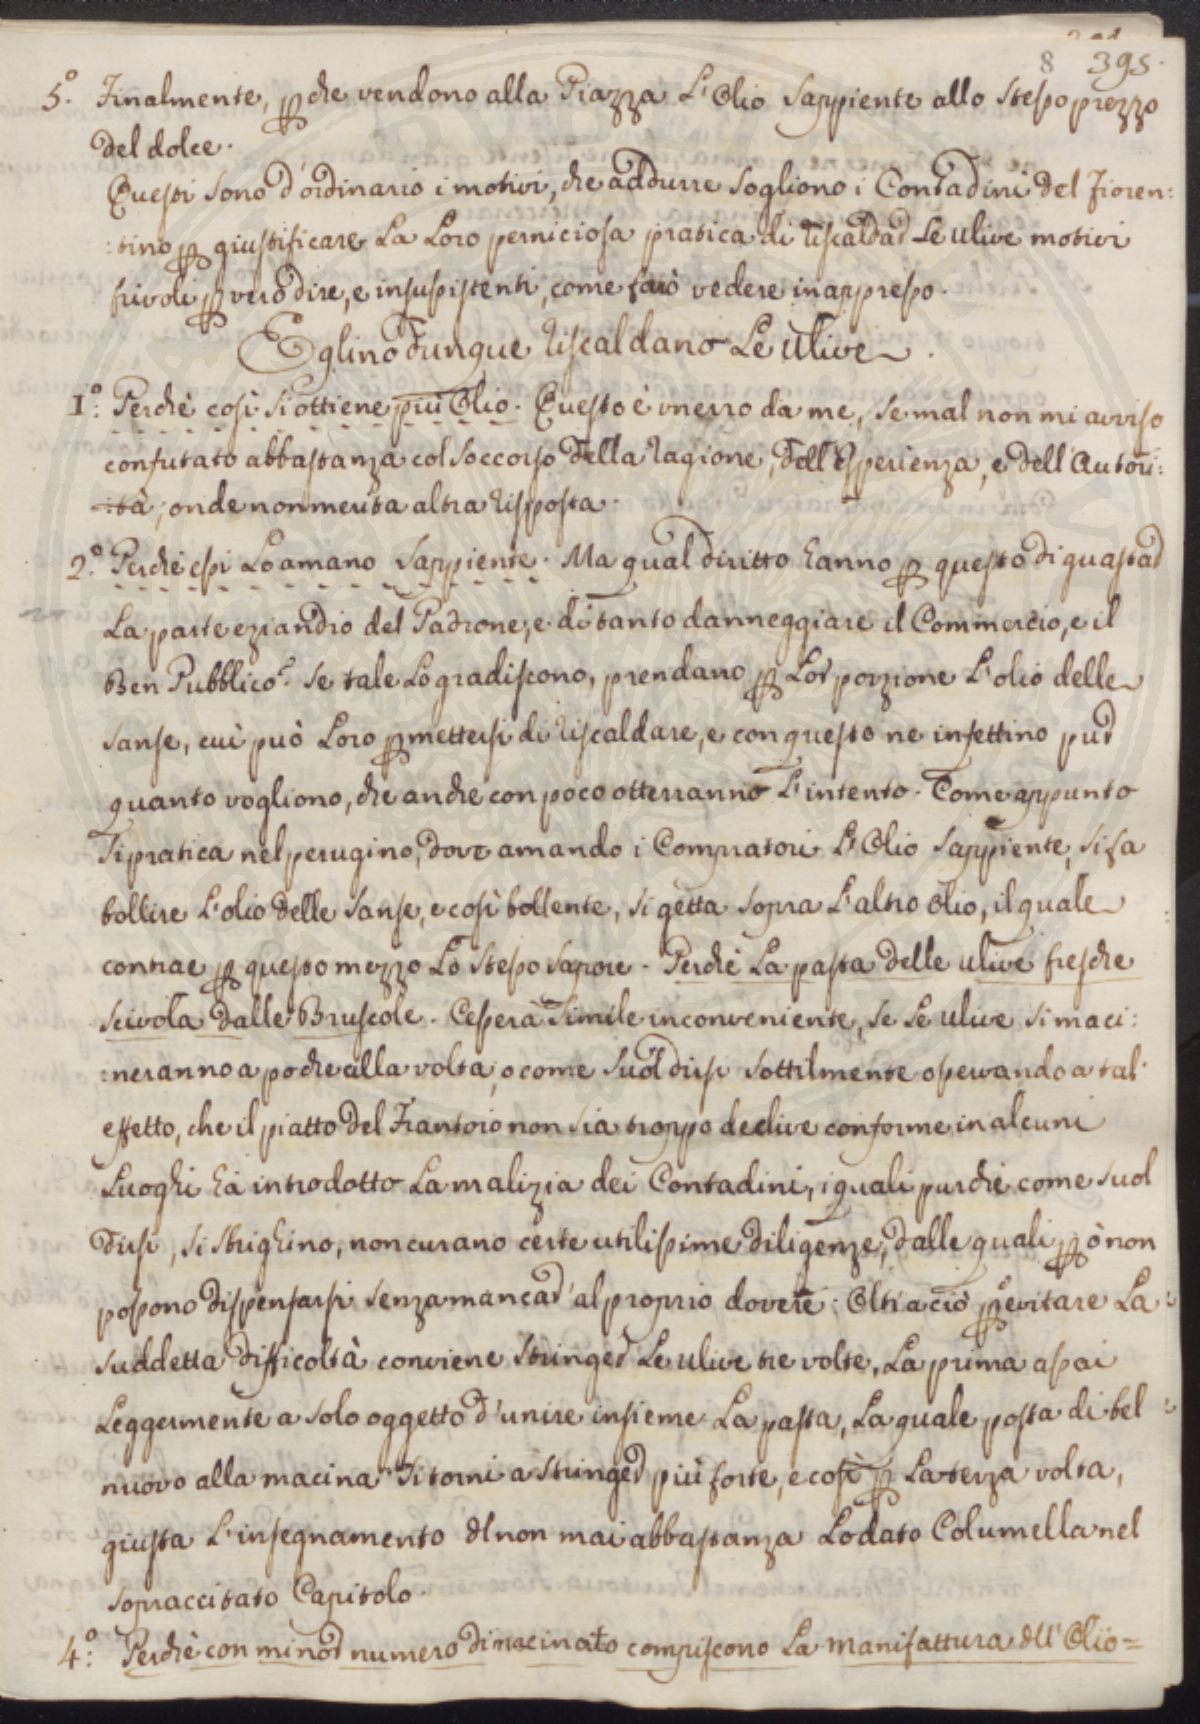 8 395.
5.° Finalmente, p che vendono alla Piazza L'Olio Sappiente allo stesso prezzo
del dolce.
Questi sono d'ordinario i motivi, che addurre sogliono i Contadini del Fioren:
:tino p giustificare La Loro perniciosa pratica di riscaldar Le ulive motivi
frivoli p vero dire, e insussistenti, come farò vedere in appresso.
Eglino dunque riscaldano Le Ulive.
1.°: Perchè così si ottiene più Olio. Questo è un erro da me, se mal non mi avviso
confutato abbastanza col Soccorso della ragione, dell'Esperienza, e dell'Autori:
:tà; onde non merita altra risposta.
2.° Perchè essi Lo amano Sappiente. Ma qual diritto hanno p questo di guastar
La parte eziandio del Padrone, e di tanto danneggiare il Commercio, e il
Ben Pubblico? Se tale Lo gradiscono, prendano p Lor porzione L'olio delle
sanse, cui può Loro pmettersi di riscaldare, e con questo ne infettino pur
quanto vogliono, che anche con poco otterranno L'intento. Come appunto
si pratica nel perugino, dove amando i Compratori L'Olio Sappiente, si fa
bollire L'olio delle Sanse, e così bollente, si getta sopra L'altro Olio, il quale
contrae p questo mezzo Lo stesso Sapore. Perchè La pasta delle ulive fresche
scivola dalle Bruscole. Cesserà simile inconveniente, se Le ulive si maci:
:neranno a poche alla volta, o come suol dirsi sottilmente osservando a tal'
effetto, che il piatto del Frantoio non sia troppo declive conforme in alcuni
Luoghi hà introdotto La malizia dei Contadini, i quali purchè come suol
dirsi, si strighino, non curano certe utilissime diligenze, dalle quali pò non
possono dispensarsi senza mancar' al proprio dovere: Oltracciò p evitare La
suddetta difficoltà conviene stringer Le ulive tre volte, La prima assai
Leggermente a solo oggetto d'unire insieme La pasta, La quale posta di bel
nuovo alla macina si torni a stringer più forte, e così p La terza volta,
giusta L'insegnamento dl non mai abbastanza Lodato Columella nel
sopraccitato Capitolo.
4.°: Perchè con minor numero di macinato compiscono La manifattura dll'Olio=